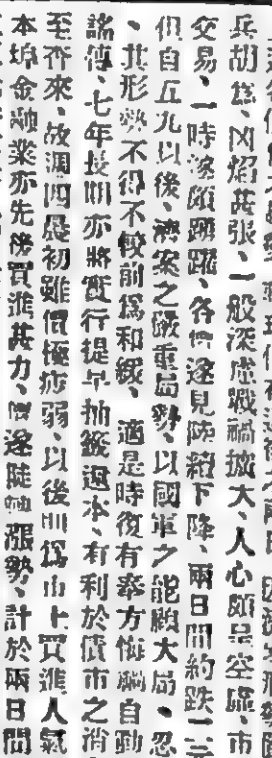 兵胡爲、凶焰甚張、一般深虑戰禍擴大、人心頗呈空虛、市
交易、一時遂頗踴躍、各價遂見陸續下降、兩日間約跌一二
但自五九以後、濟案之嚴重局勢、以國軍之能顧大局、忍
、其形勢不得不較前爲和緩、適是時復有奉方悔禍自動
謠傳、七年長期亦將實行提早抽籤還本、有利於債市之消
至沓來、故週四晨初雖價極疲弱、以後則爲市上買進人氣
本埠金融業亦先後買進甚力、價遂陡轉漲勢、計於兩日間